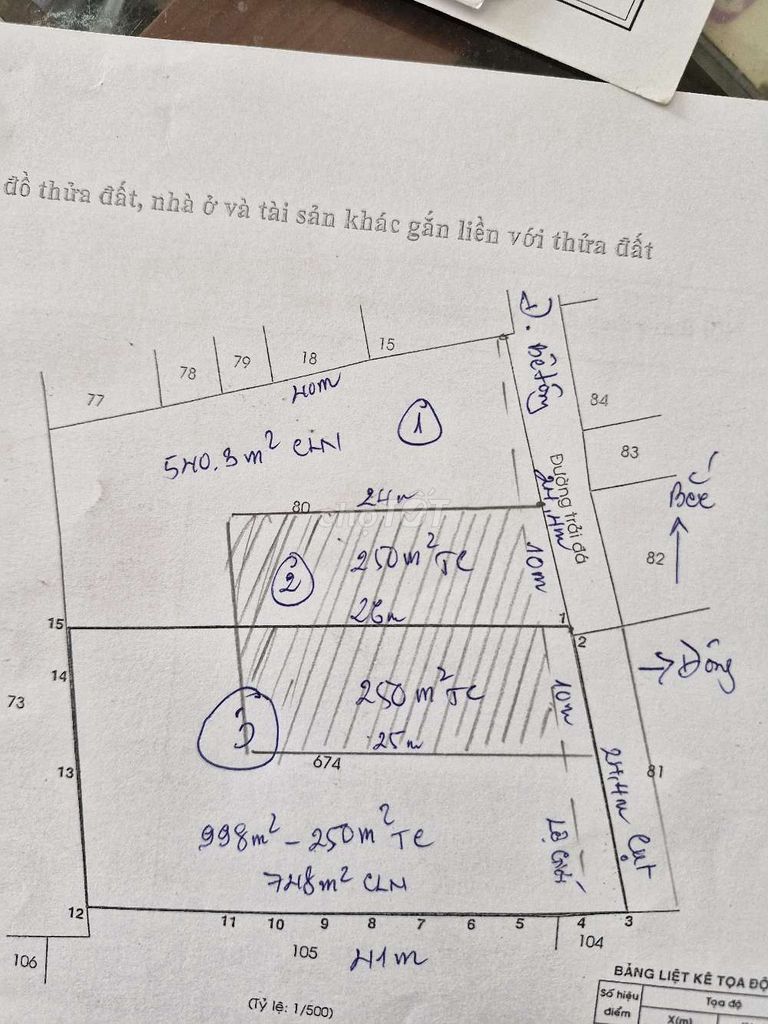 đồ thửa đất, nhà ở và tài sản khác gắn liền với thửa đất
Đ. Bê tông
15
18
79
78
77
40m
84
1
83
540.3m² CLN
Đường trải đá
24,4m
Bắc
24m
80
chợTỐT
82
250m² TC
10m
2
26m
15
1
2
Đông
14
73
250m² TC
10m
3
25m
674
13
81
24,4m Cạt
998m² - 250m² TC
Lộ Giới
748m² CLN
12
11
10
9
8
7
6
5
4
3
106
105
41m
104
(Tỷ lệ: 1/500)
BẢNG LIỆT KÊ TỌA ĐỘ
Số hiệu
điểm
Tọa độ
X(m)